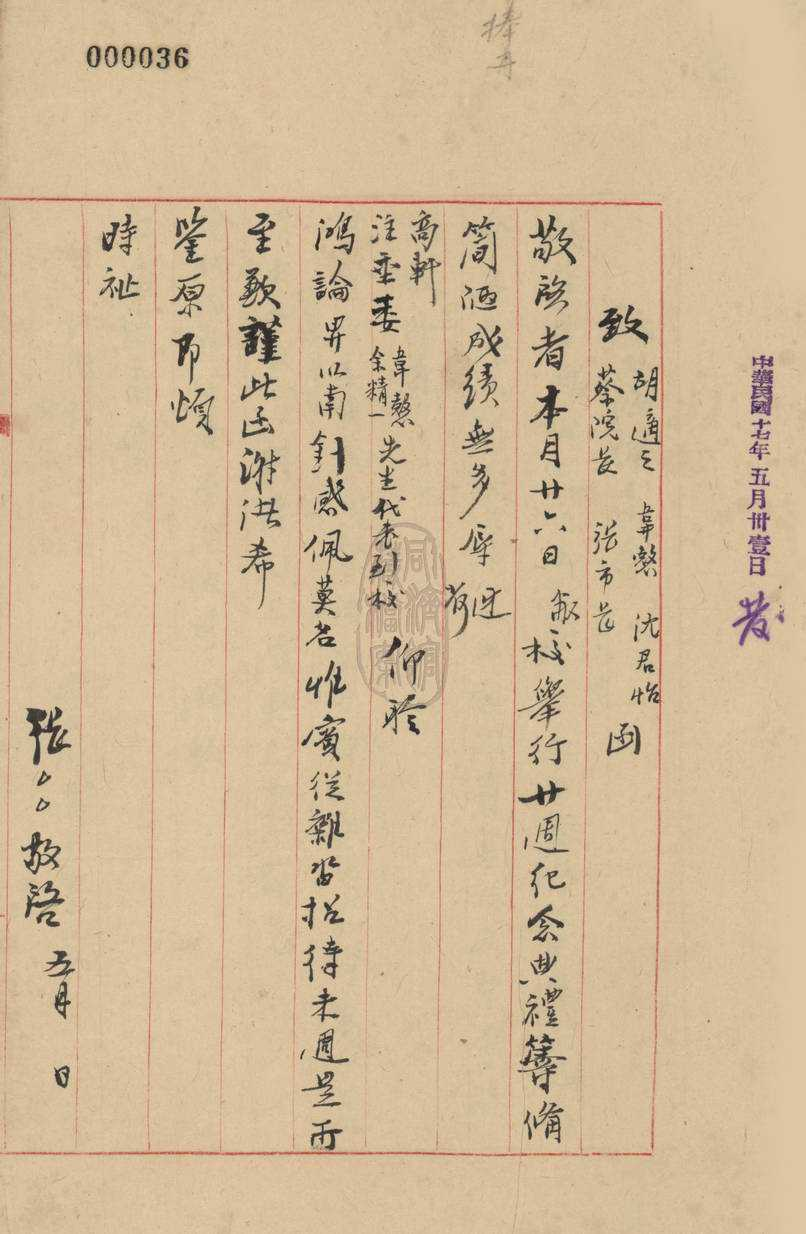 000036
中華民國十七年五月卅壹日 發
致 胡適之 韋愨 沈君怡 蔡院長 張市長 函
敬啓者本月廿六日敝校舉行廿週紀念典禮籌備
簡陋成績無多辱荷
高軒
注 委 韋愨 余精一 先生代表到校 仰聆
鴻論畀以南針感佩莫名惟賓從雜沓招待未週是所
至歉謹此函謝洪希
鑒原即頌
時祉
張○○敬啓 五月 日